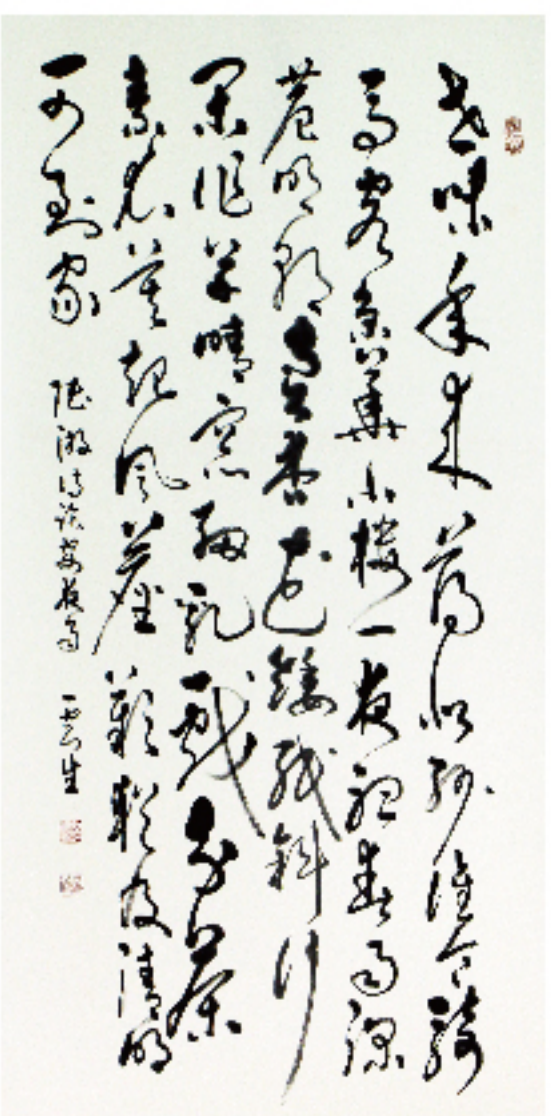 世味年来薄似紗誰令騎
馬客京華小樓一夜聽春雨深
巷明朝賣杏花矮紙斜行
閑作草晴窓細乳戲分茶
素衣莫起風塵歎猶及清明
可到家
陸游詩 雲生